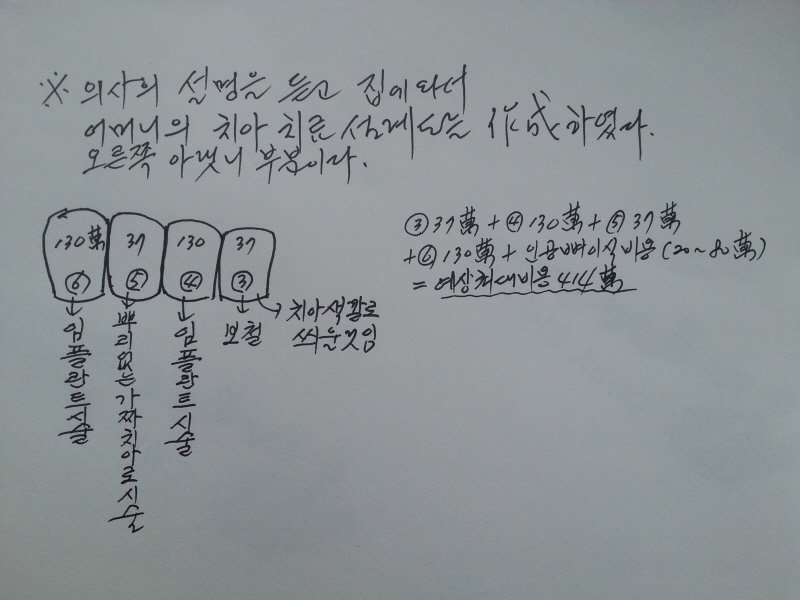 ※ 의사의 설명을 듣고 집에 와서
어머니의 치아 치료 설계도를 作成하였다.
오른쪽 아랫니 부분이다.
130萬 37 130 37
⑥ ⑤ ④ ③
임플란트시술
뿌리없는가짜치아로시술
임플란트시술
보철
치아색깔로
씌운것임
③37萬+④130萬+⑤37萬
+⑥130萬+인공뼈이식비용(20~80萬)
=예상최대비용414萬